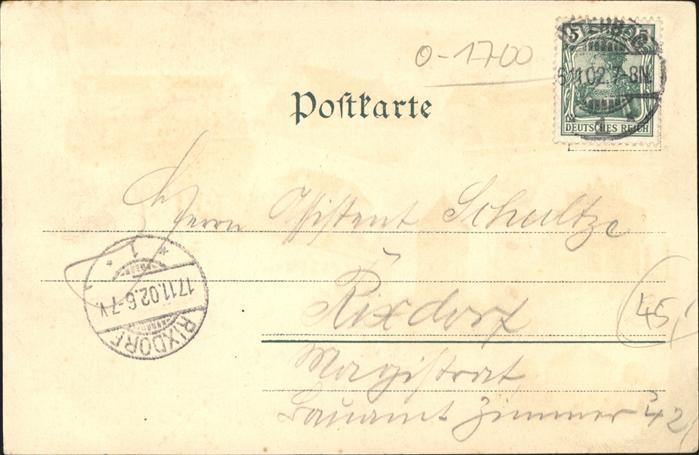 0-1700
5 5
16.11.02.7-8N.
DEUTSCHES REICH
Postkarte
Herrn Assistent Schultze
Rixdorf
45,
Magistrat
Bauamt Zimmer 42
1
17.11.02.6-7V.
RIXDORF